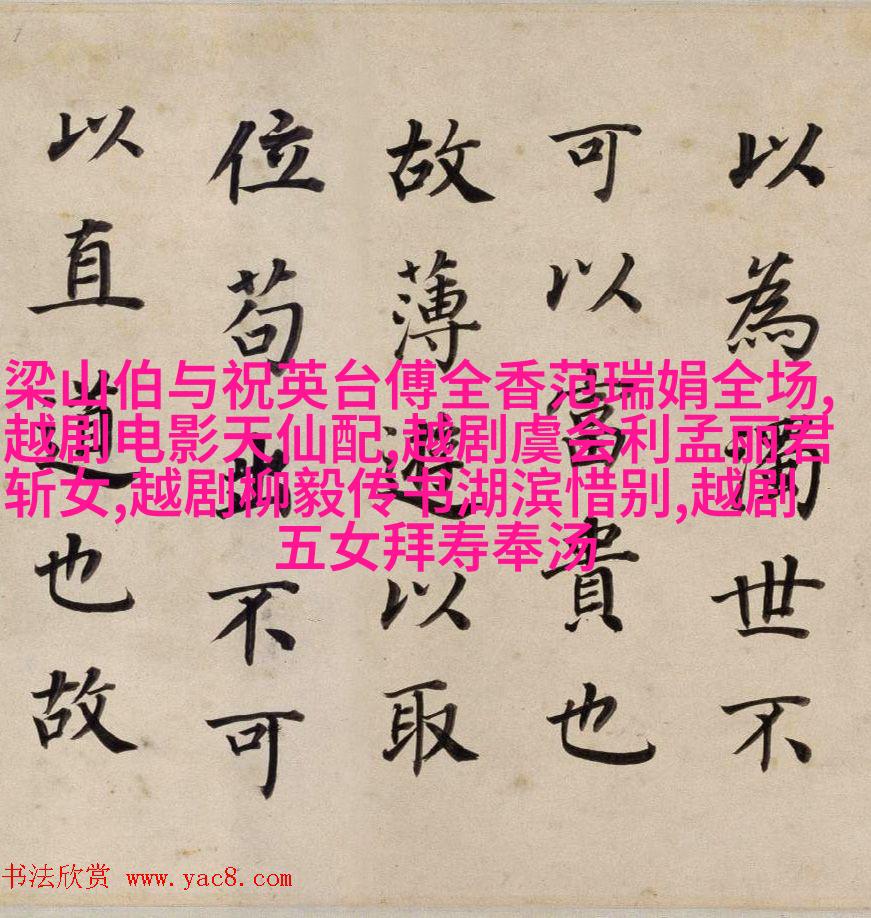 以為濁世不
可以富貴也
故薄遊以取
位苟出不可
以直道也故
梁山伯与祝英台傅全香范瑞娟全场,
越剧电影天仙配,越剧虞会利孟丽君
斩女,越剧柳毅传书湖滨惜别,越剧
五女拜寿奉汤
书法欣赏 www.yac8.com